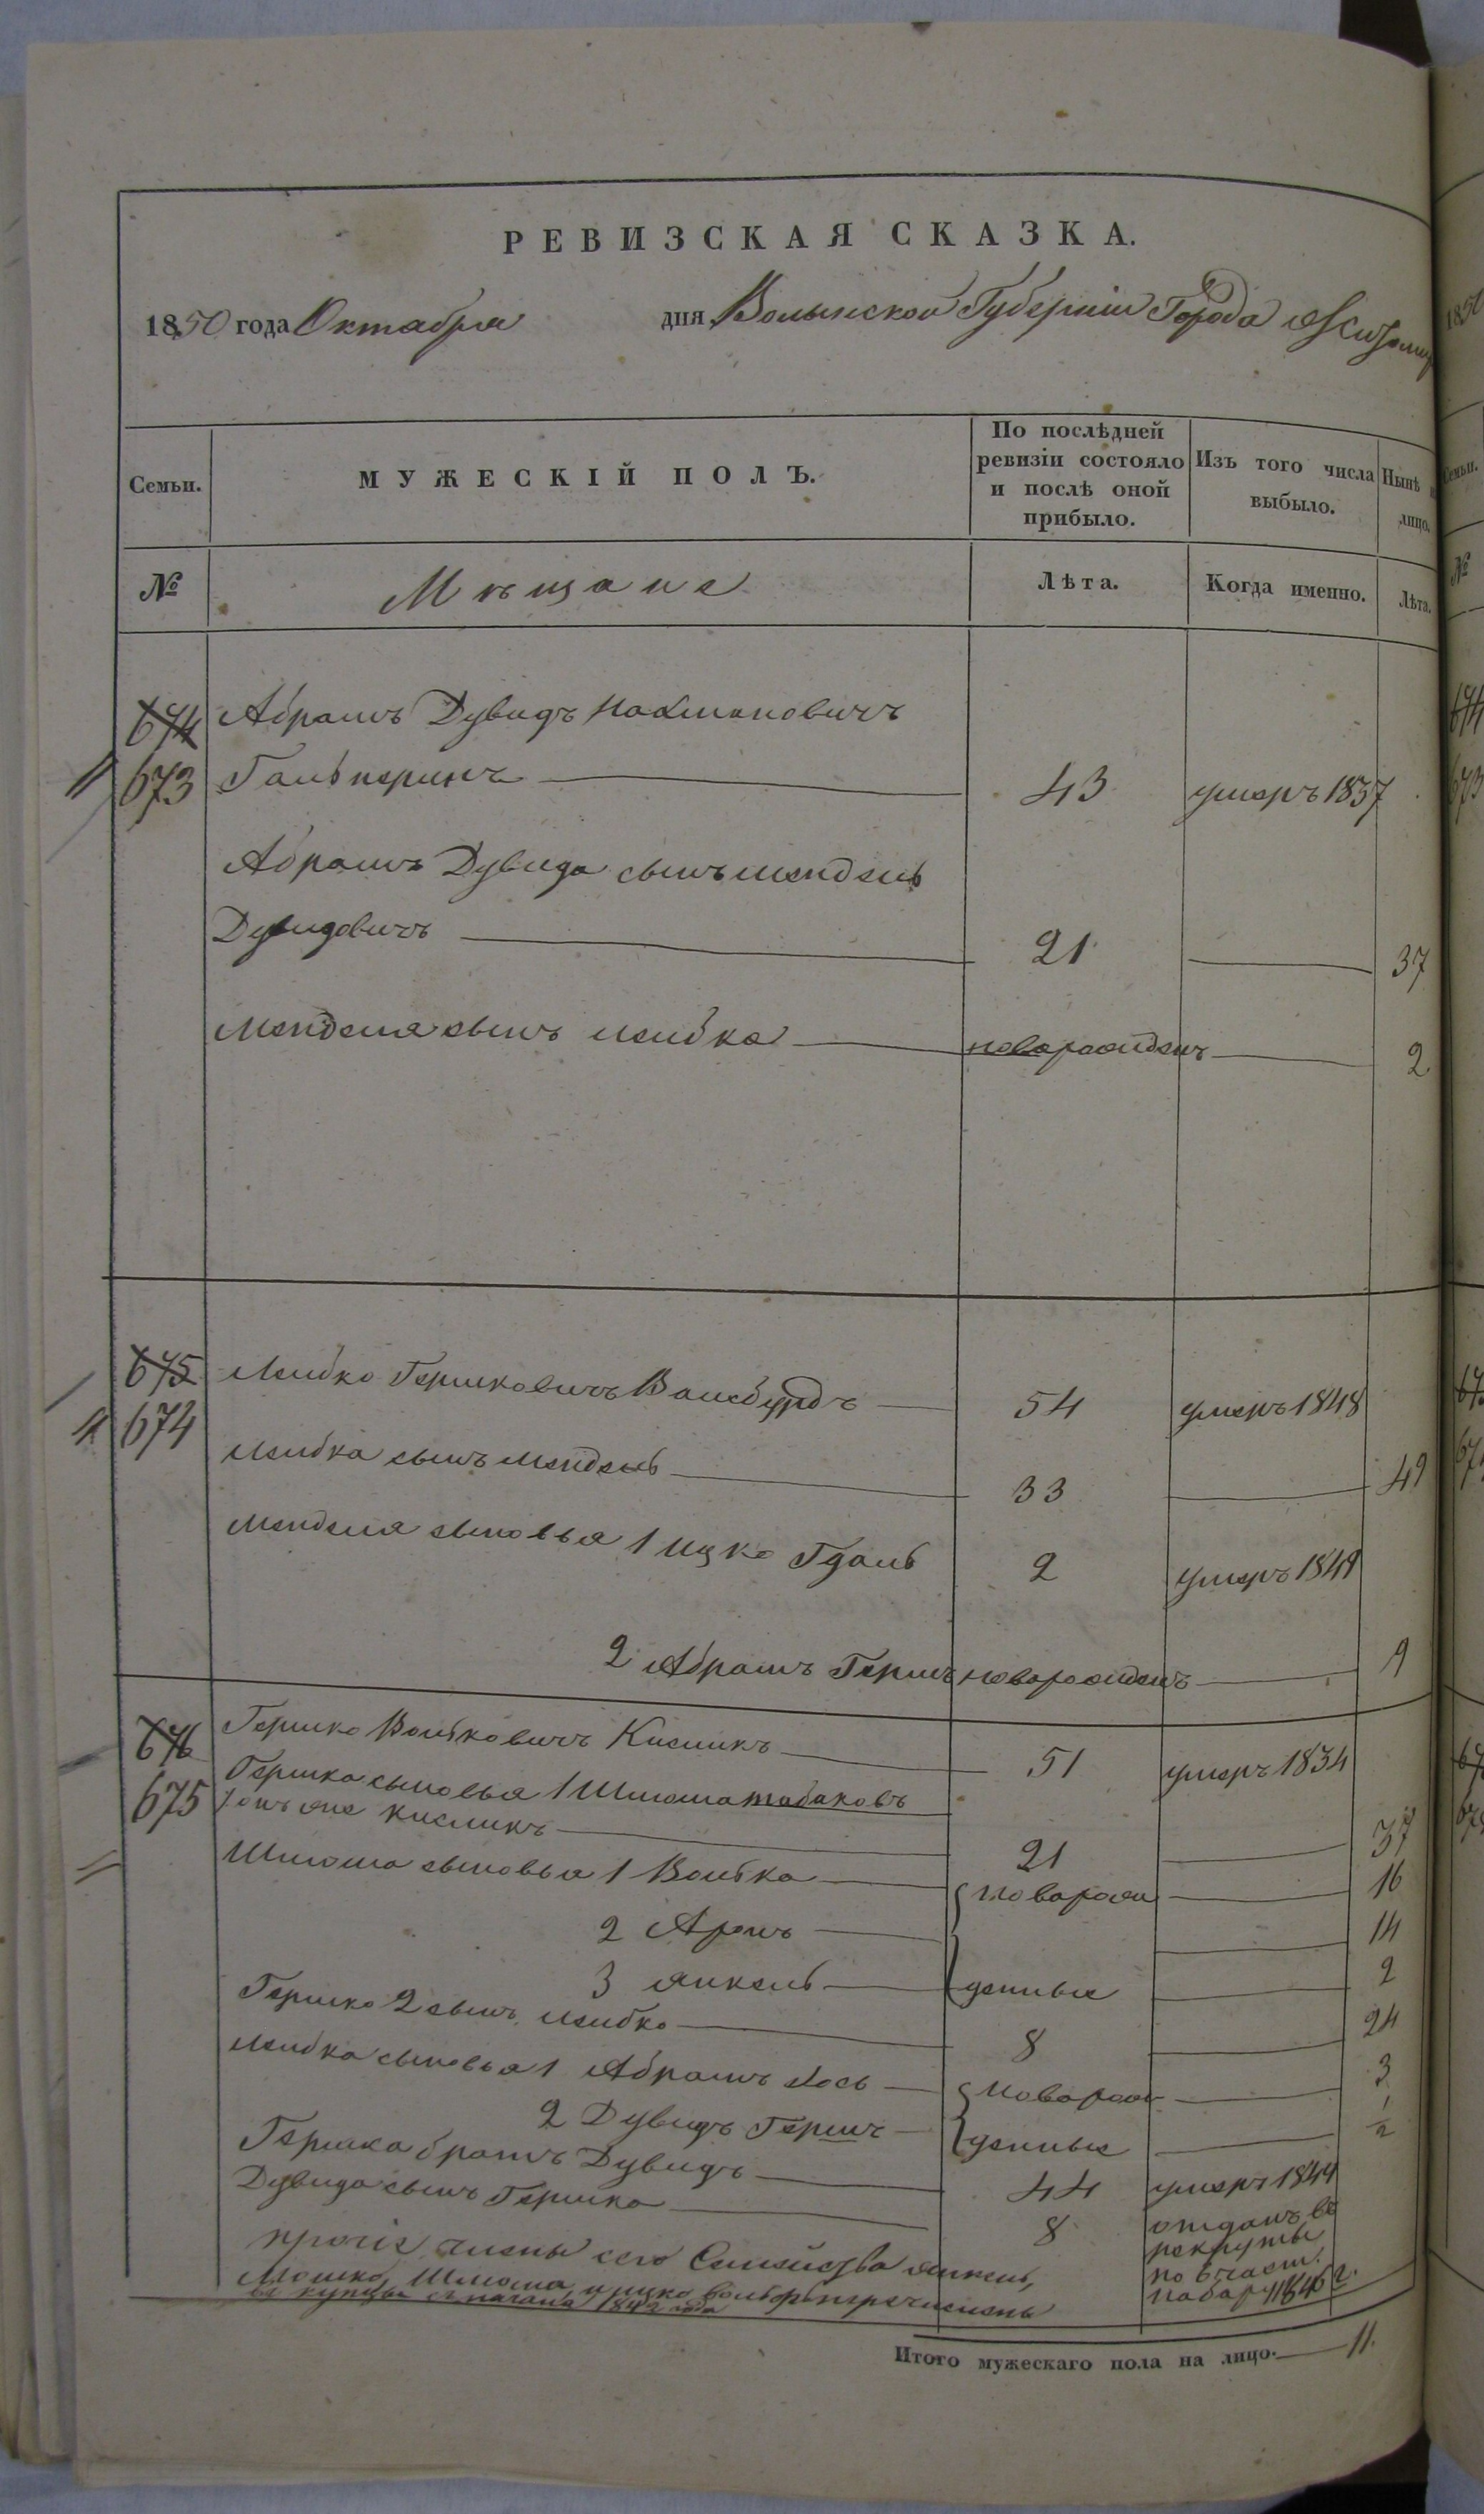 РЕВИЗСКАЯ СКАЗКА.
1850 года Октября дня Волынской Губернiи Города Житомир
Семьи.
МУЖЕСКIЙ ПОЛЪ.
По послѣдней ревизiи состояло и послѣ оной прибыло.
Изъ того числа выбыло.
Нынѣ
лицо,
№
Мѣщане
Лѣта.
Когда именно.
Лѣта.
674 Абрамъ Дувидъ Нахмановичъ
673 Гальперинъ 43 умеръ 1837
Абрамъ Дувида сынъ Мендель
Дувидовичъ 21 37
Менделя сынъ Лейбка новорожденъ 2
675 Лейбко Гершковичъ 54 умеръ 1848
674
Лейбка сынъ Мендель 33 49
Менделя сыновья 1 Ицко Гдаль 2 умеръ 1849
2 Абрамъ Гершъ новорожденъ 9
676 Гершко Вольковичъ Кисликъ 51 умеръ 1834
Гершка сыновья 1 Шлиома Табаковъ
675 онъ же Кисликъ 21 37
Шлиома сыновья 1 Волька новорож 16
2 Аронъ 14
3 Янкель денные 2
Гершко 2 сынъ Лейбко 8 24
Лейбка сыновья 1 Абрамъ Іось новорож 3
2 Дувидъ Гершъ денные 1/2
Гершка братъ Дувидъ 44 умеръ 1844
Дувида сынъ Гершко 8 отданъ въ
рекруты
по 6 част.
набару 1846 г.
прочiе члены сего Семейства Янкель,
Мошко, Шлиома, и Ицко Вольфъ перечислены
въ купцы съ начала 1842 года
Итого мужескаго пола на лицо. 11.